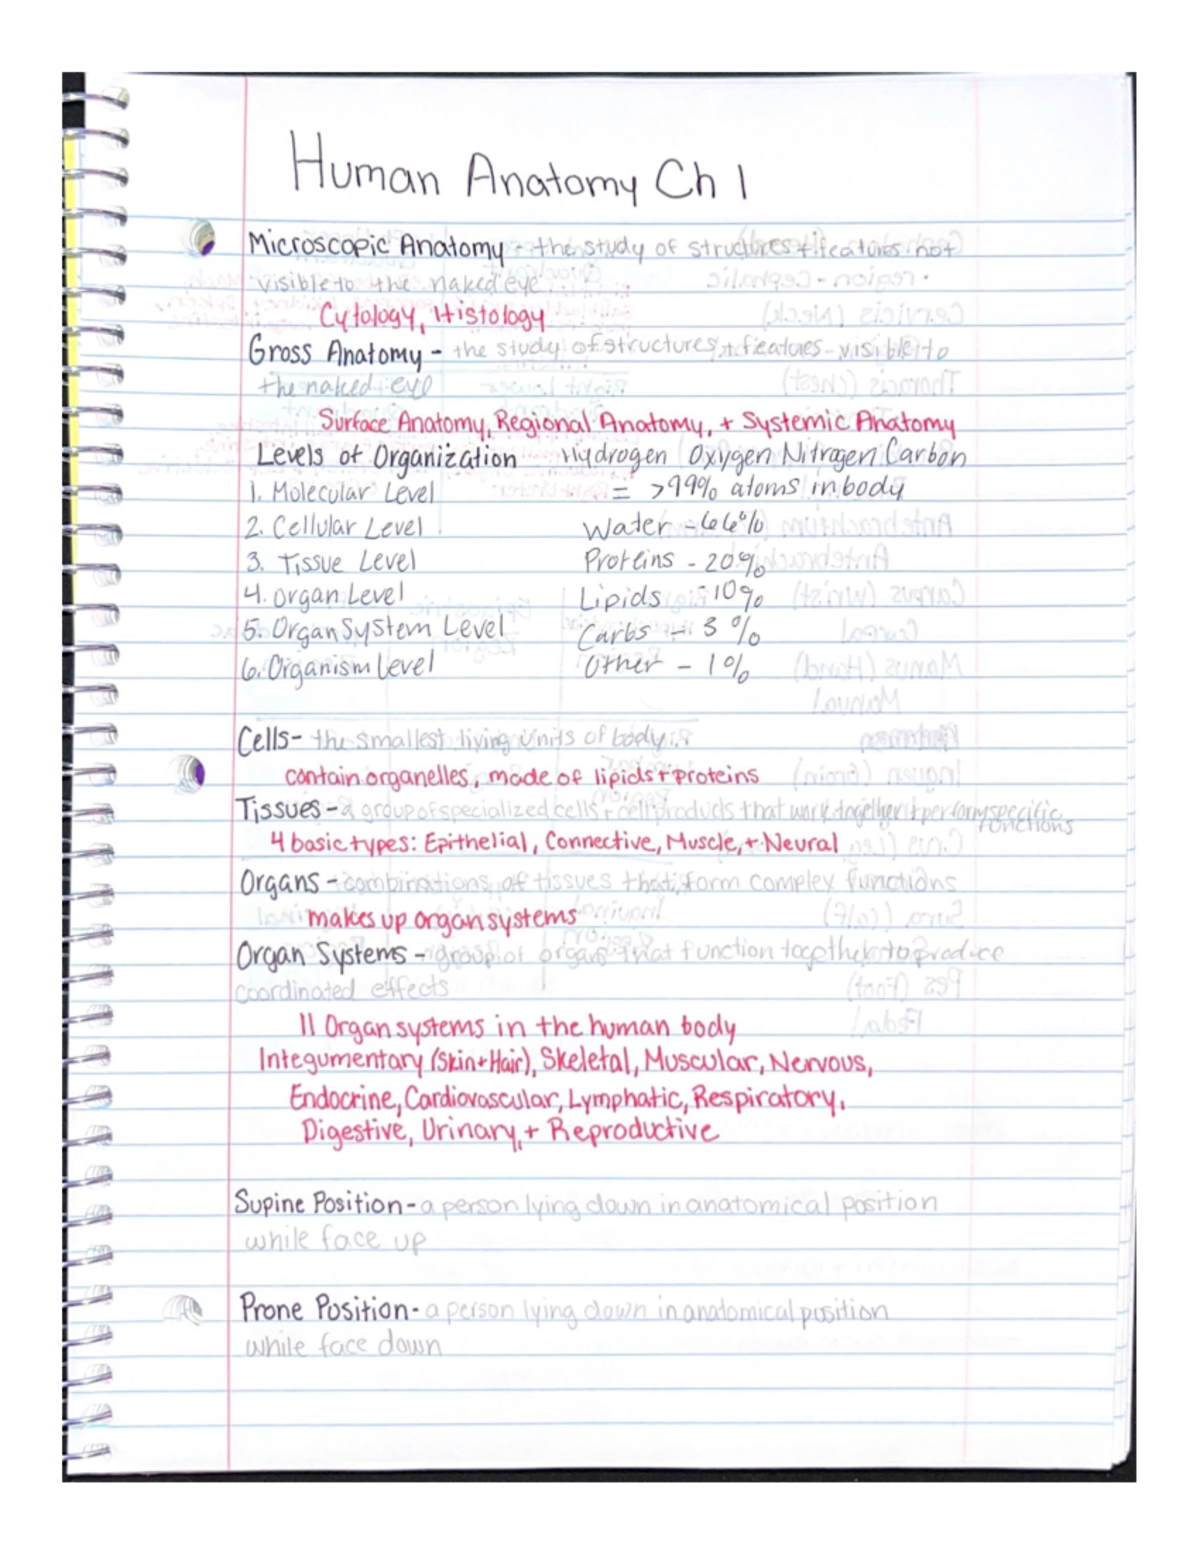 Human Anatomy Ch 1
Microscopic Anatomy - the study of structures + features not
visible to the naked eye
Cytology, Histology
Gross Anatomy - the study of structures + features visible to
the naked eye
Surface Anatomy, Regional Anatomy, + Systemic Anatomy
Levels of Organization Hydrogen Oxygen Nitrogen Carbon
1. Molecular Level = >99% atoms in body
2. Cellular Level Water - 66%
3. Tissue Level Proteins - 20%
4. Organ Level Lipids - 10%
5. Organ System Level Carbs - 3%
6. Organism Level Other - 1%
Cells - the smallest living units of body
contain organelles, made of lipids + proteins
Tissues - a group of specialized cells + cell products that work together + perform specific
functions
4 basic types: Epithelial, Connective, Muscle, + Neural
Organs - combinations of tissues that form complex functions
makes up organ systems
Organ Systems - group of organs that function together to produce
coordinated effects
11 Organ systems in the human body
Integumentary (Skin + Hair), Skeletal, Muscular, Nervous,
Endocrine, Cardiovascular, Lymphatic, Respiratory,
Digestive, Urinary, + Reproductive
Supine Position - a person lying down in anatomical position
while face up
Prone Position - a person lying down in anatomical position
while face down